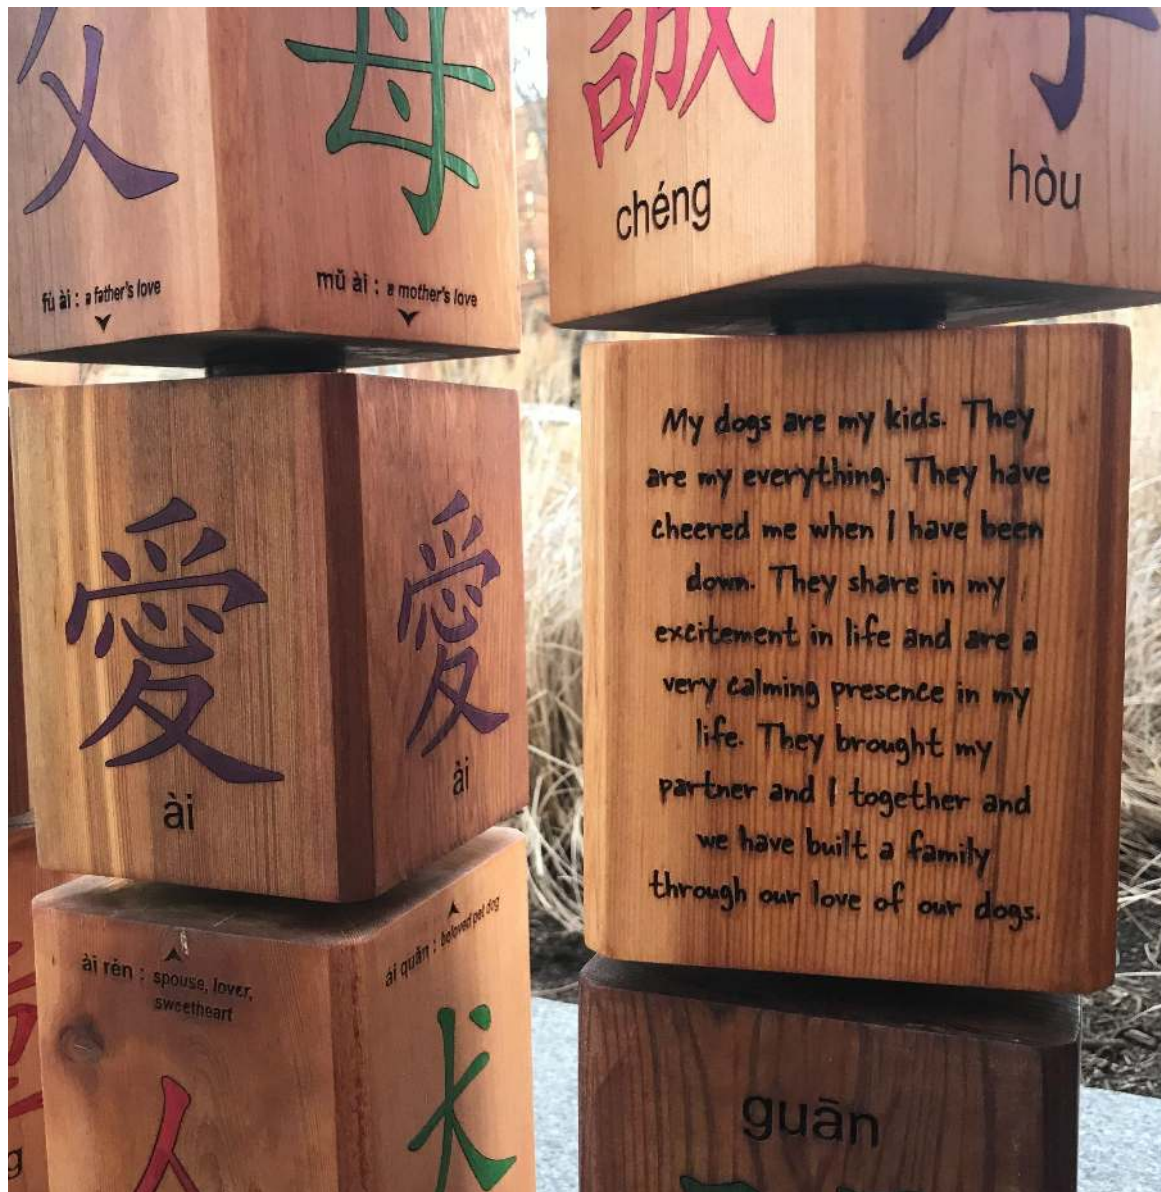 父
母
fù ài : a father's love
mǔ ài : a mother's love
愛
愛
ài
ài
ài rén : spouse, lover,
sweetheart
ài quǎn : beloved pet dog
人
犬
誠
chéng
hòu
My dogs are my kids. They
are my everything. They have
cheered me when I have been
down. They share in my
excitement in life and are a
very calming presence in my
life. They brought my
partner and I together and
we have built a family
through our love of our dogs.
guān